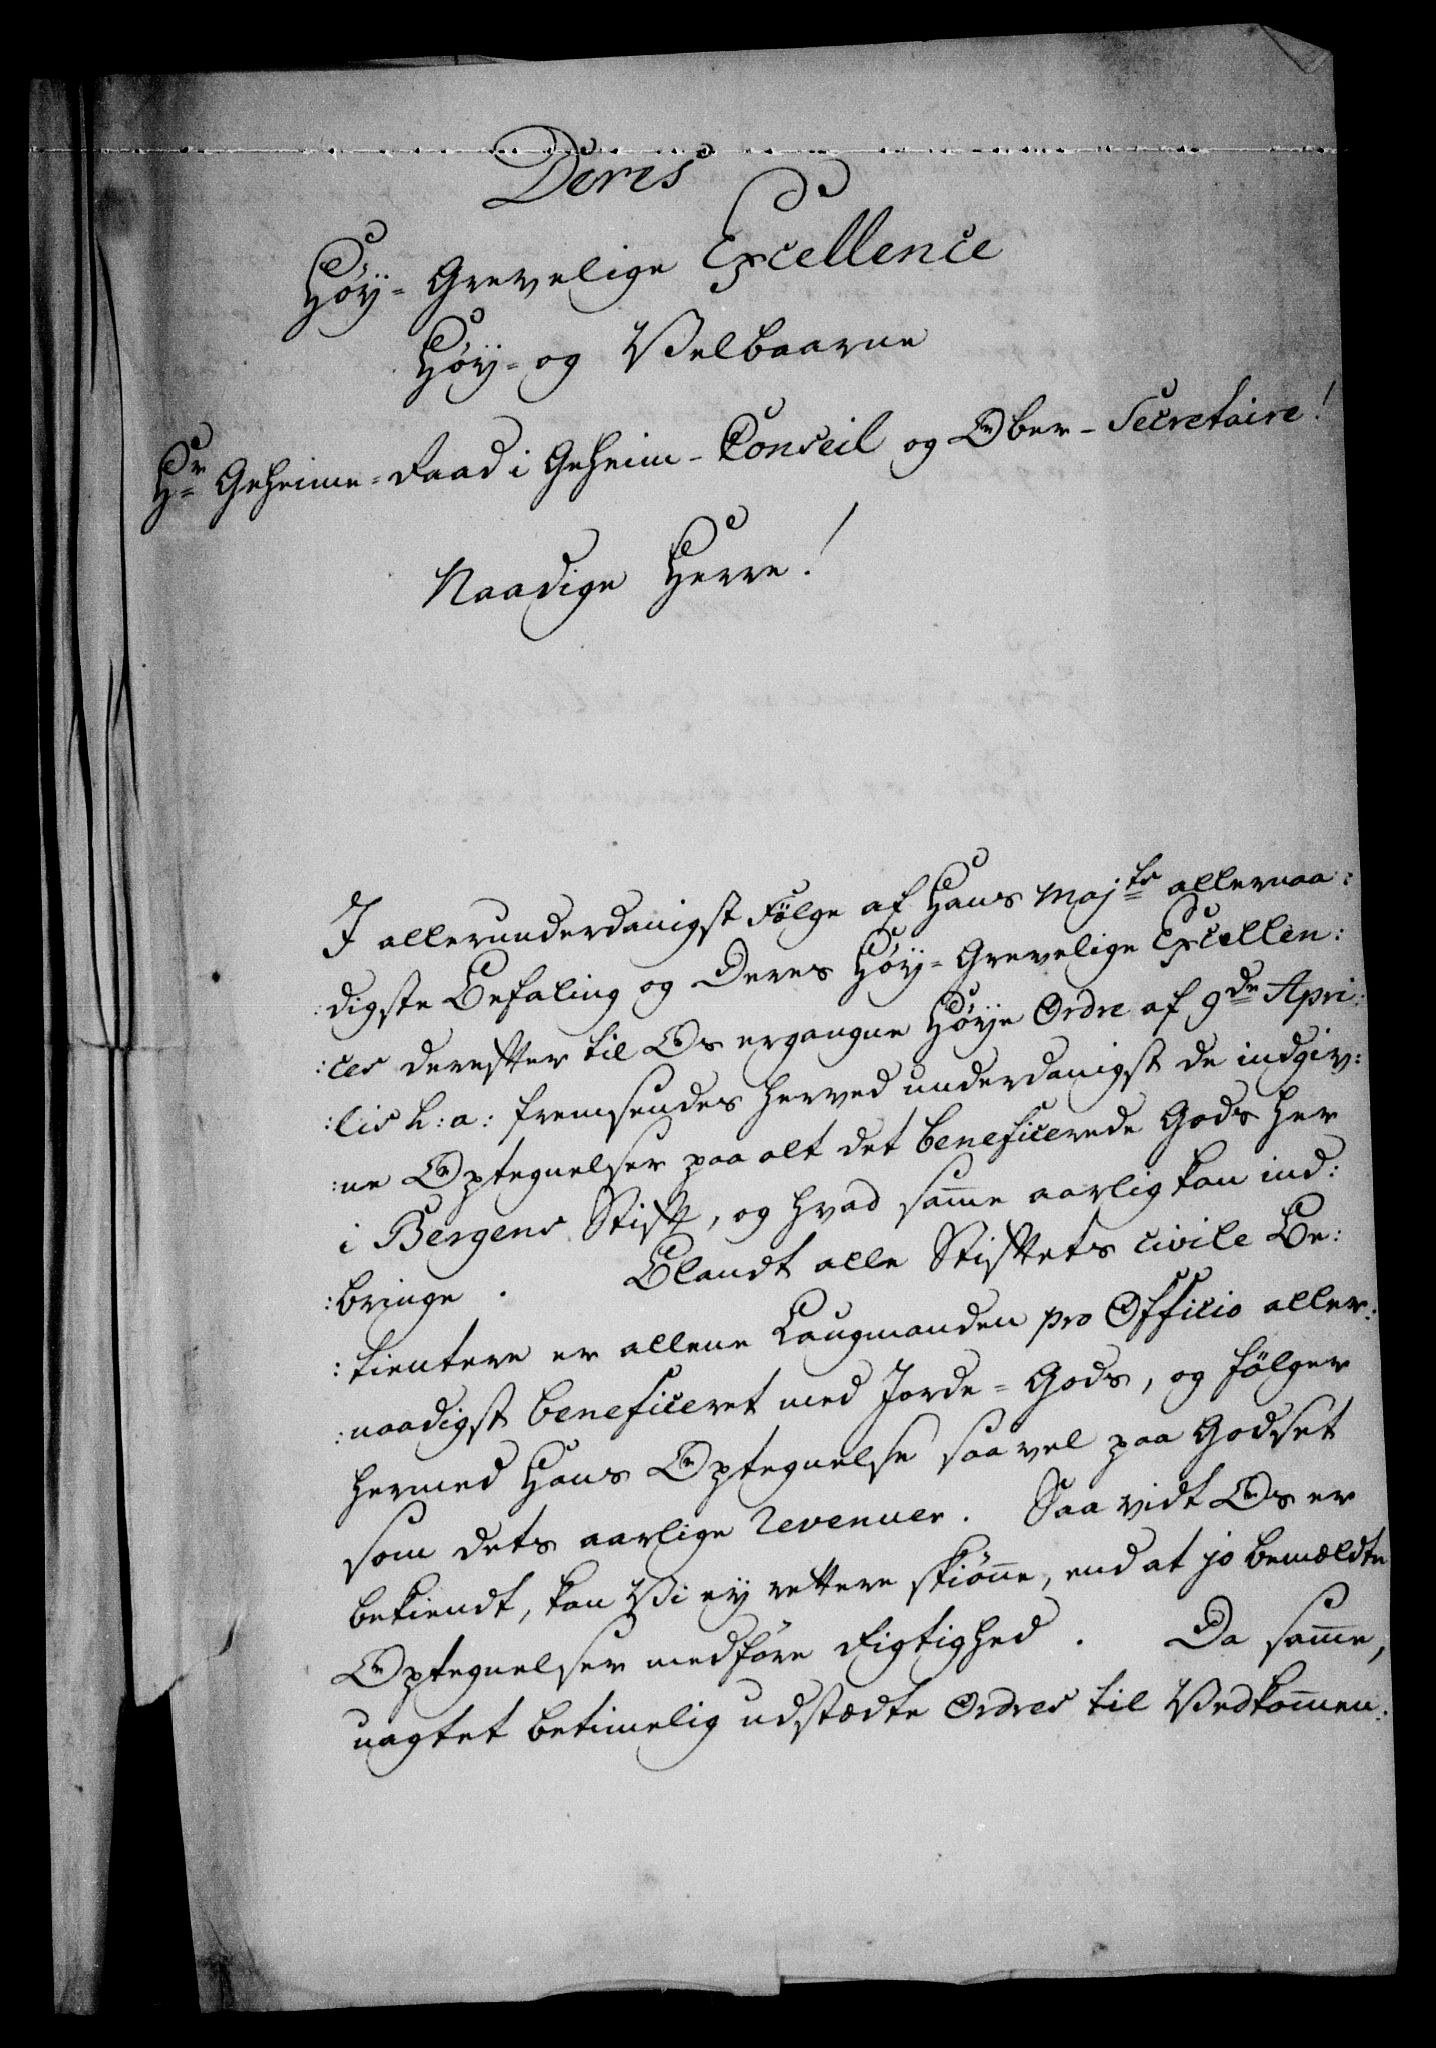 Deres
Høy- Grevelige Excellence
Høy- og Velbaarne
Hr Geheime-Raad i Geheim-Conseil og Ober-Secretaire!
Naadige Herre!
I allerunderdanigst Følge af Hans Majts allernaa:
:digste Befaling og Deres Høy-Grevelige Excellen:
:ces derefter til Os ergangne Høye Ordre af 9de Apri:
:lis h: a: fremsendes herved underdanigst de indgiv:
:ne Optegnelser paa alt det beneficerede Gods her
i Bergens Stift, og hvad same aarlig kan ind:
:bringe. Blandt alle Stiftets civile Be:
:tientere er allene Laugmanden pro Officio aller:
:naadigst beneficeret med Jorde-Gods, og følger
hermed Hans Optegnelse saavel paa Godset
som dets aarlige Revenuer. Saa vidt Os er
bekiendt, kan Vi ey rettere skiøne, end at jo bemældte
Optegnelser medføre Rigtighed. Da same,
uagtet betimelig udstædte Ordres til Vedkomen: